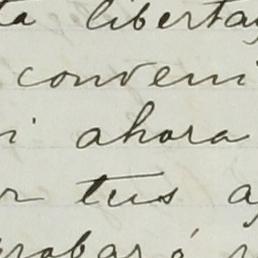 ta liberta
conveni
i ahora
r tus a
robaré